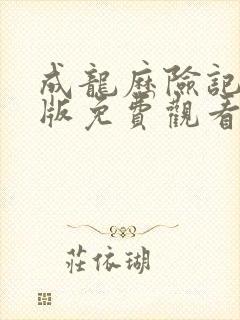 成龍歷險記
版免費觀看
莊依瑚